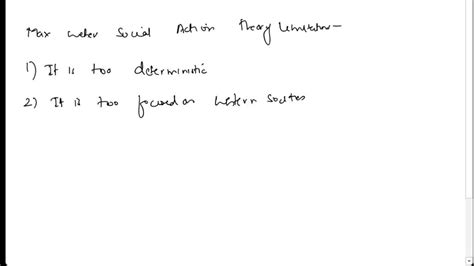 Max Weber Social Action Theory Limitation -
1) It is too deterministic
2) It is too focused on western societies